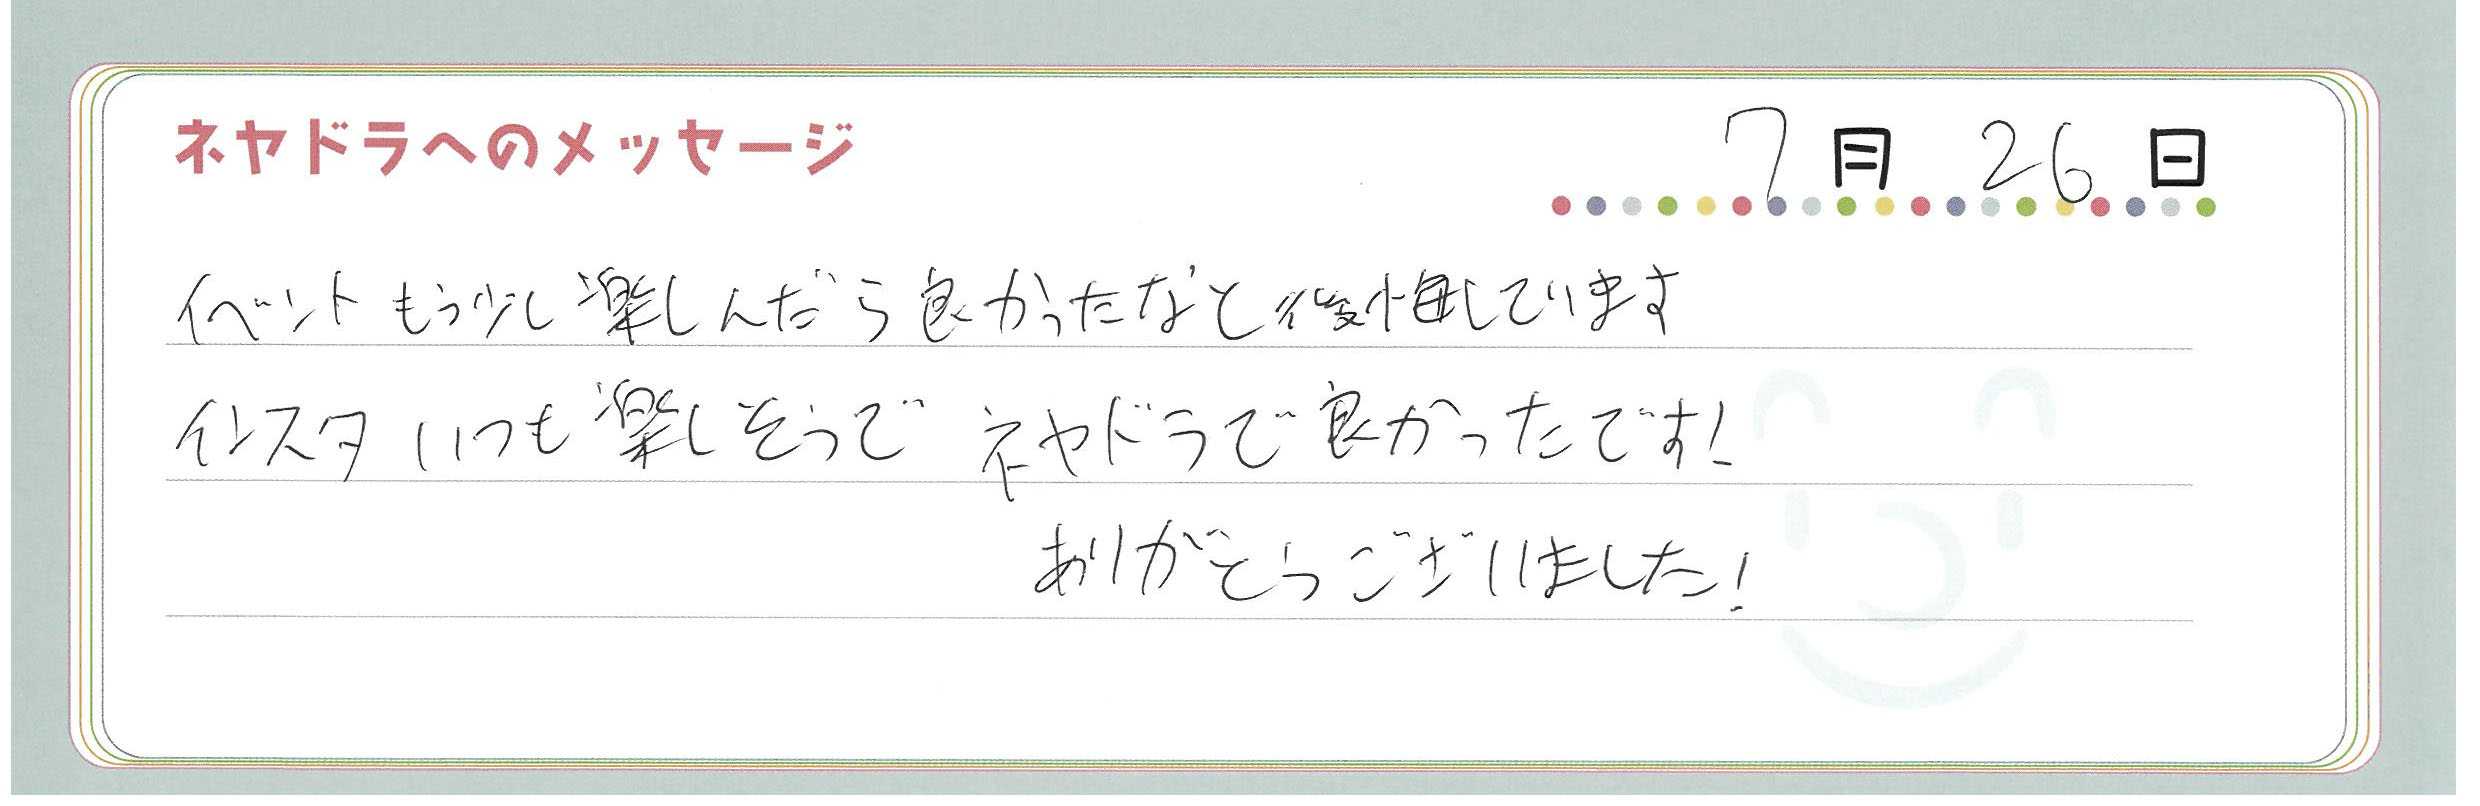 ネヤドラへのメッセージ 7月26日
イベントもう少し楽しんだら良かったなと後悔しています
インスタいつも楽しそうで ネヤドラで良かったです!
ありがとうございました!